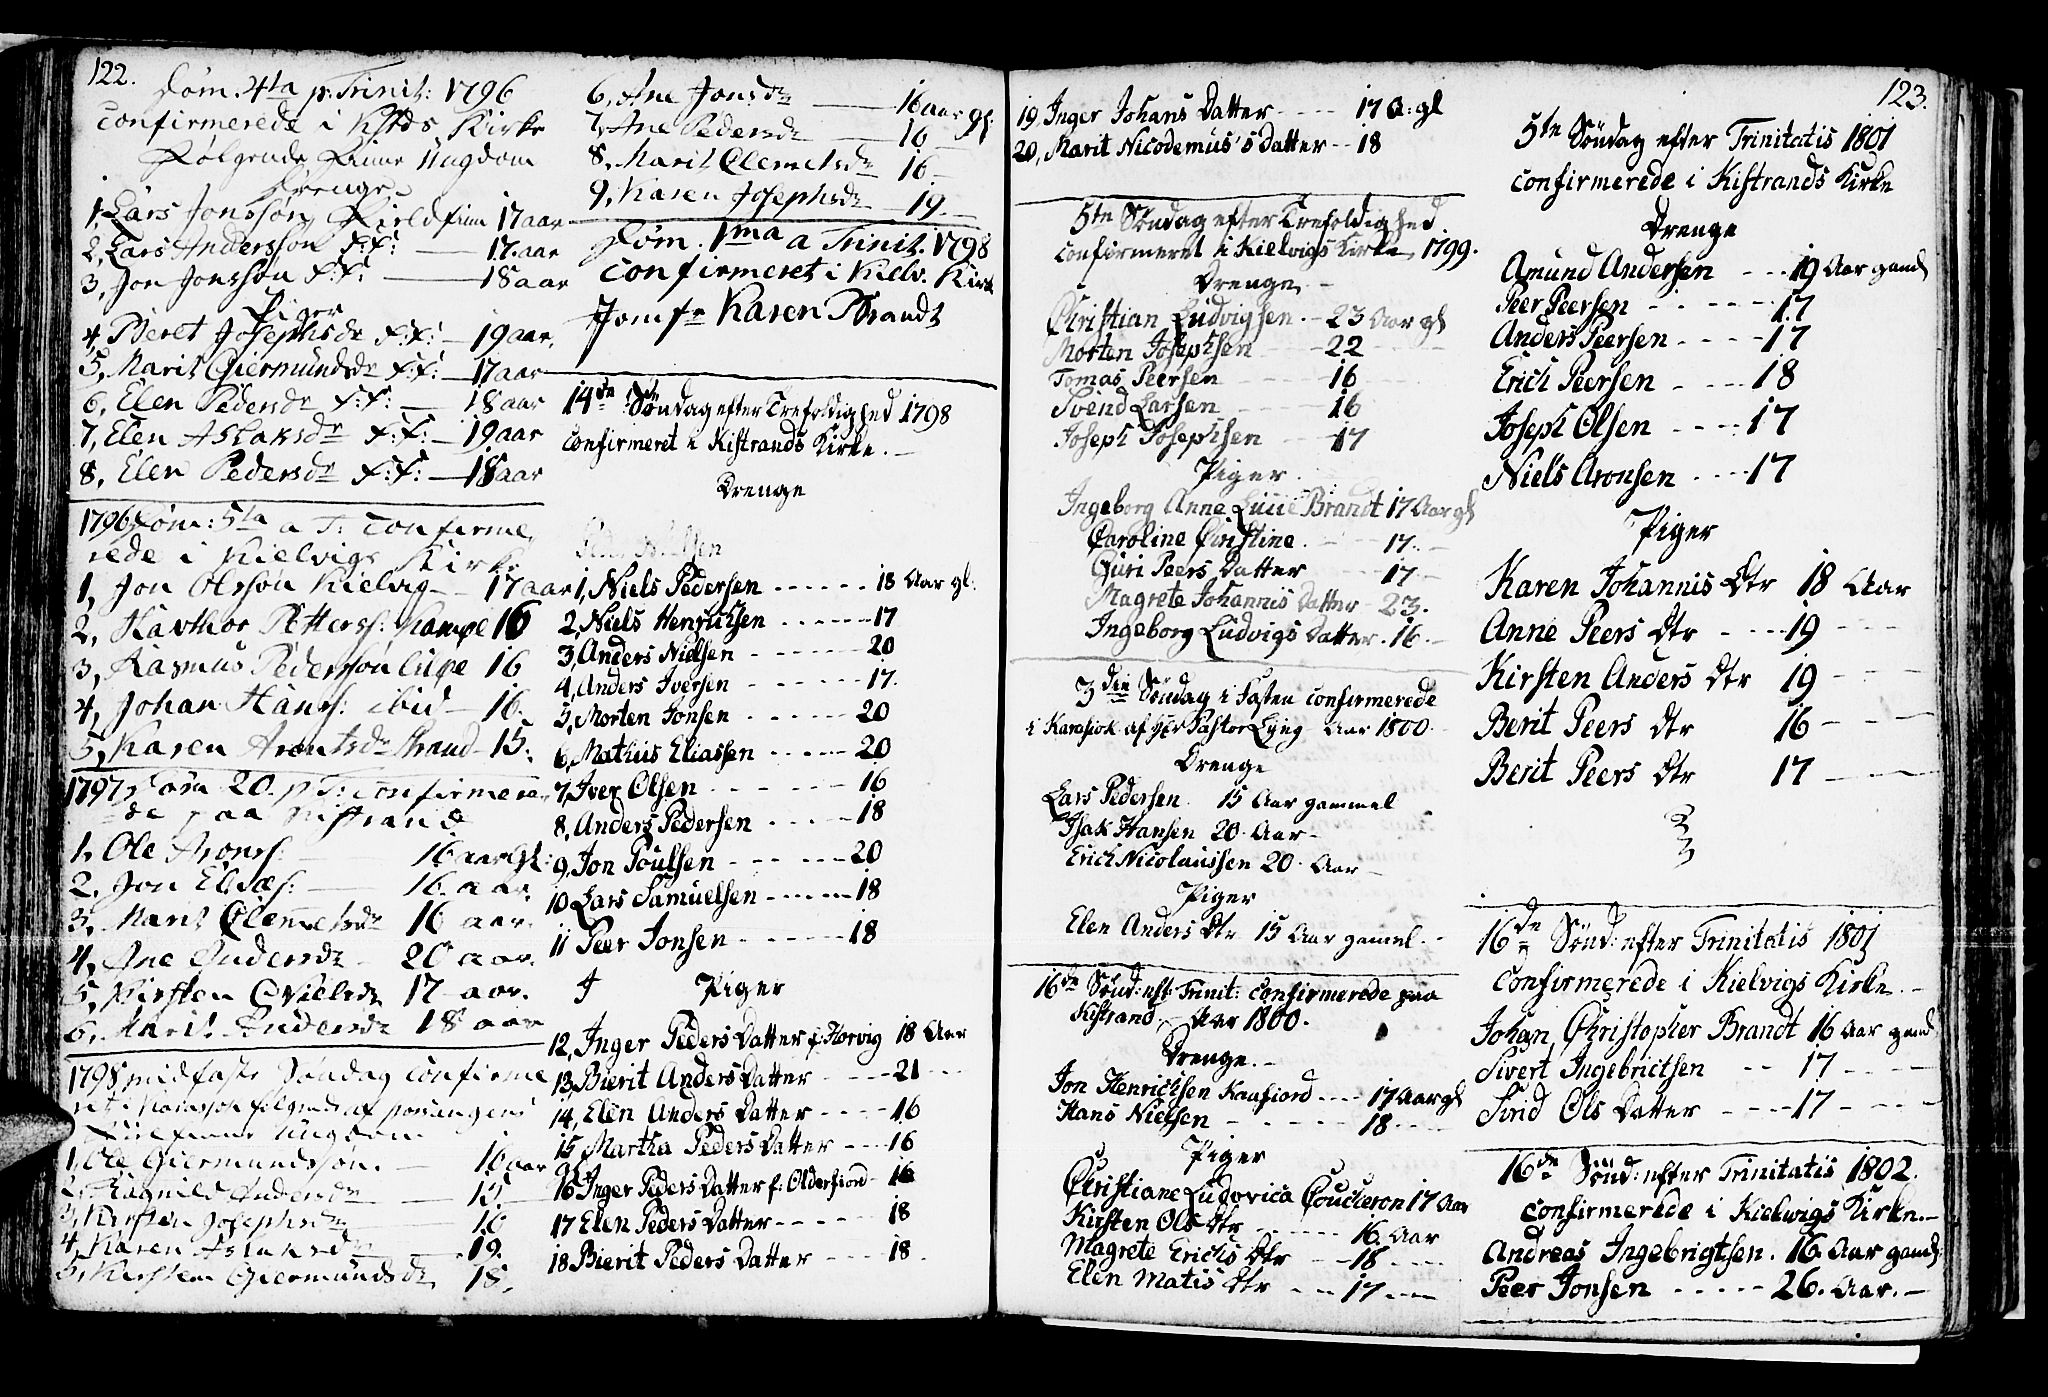 122.
Dom. 4ta p. Trinit: 1796
confirmerede i Kistr. Kirke
Følgende Finne Ungdom
Drenge
1, Lars Jonssøn, Fieldfinn 17 aar
2, Lars Anderssøn F:f: 17. aar
3, Jon Jonssøn F:f: 18 aar
Piger
4, Beret Josephsdr F:f: 19 aar.
5, Marit Giermundsdr F:f: 17 aar
6, Elen Pedersdr F:f: 18 aar
7, Elen Aslaksdr F:f: 19 aar
8, Elen Pedersdr F:f: 18 aar
1796 Dom: 5ta a T: Confirme
rede i Kielvigs Kirke
1, Jon Olssøn Kielvig 17 aar
2, Petters: Kampe 16
3, Rasmus Pederssøn 16
4, Johan Hans: ibid 16.
5, Karen Arentsdr 15.
1797 Dom 20. p T: Confirmere
de paa Kistrand
1, Ole Arons: 16 aar Gl:
2. Jon Elias: 16. aar
3. Marit Clemetsdr 16 aar.
4, Ane Andersdr 20 aar.
5, Kirsten Nielsdr 17 aar.
6. Marit Andersdr 18 aar
1798 midfaste Søndag Confirme
ret i Karasjok følgende af Porsangens
Fieldfinne Ungdom
1, Ole Giermundssøn. 16 aar
2, Ragnild Andersdr 15
3, Kirsten Josephsdr 16
4, Karen Aslaksdr 19.
5, Kirsten Giermundsdr 18.
6, Ane Jonsdr 16 aar gl.
7, Ane Pedersdr 16
8, Marit Clemetsdr 16
9, Karen Josephsdr 19.
Dom. 1ma a Trinit. 1798
Confirmeret i Kielv. Kirk
Jomfr Karen Brandt
14de Søndag efter Trefoldighed 1798
Confirmeret i Kistrands Kirke.
Drenge
1, Niels Pedersen 18 Aar gl:
2, Niels Henrichsen 17
3, Anders Nielsen 20
4, Anders Iversen 17.
5, Morten Jonsen 20
6, Mathis Eliassen 20
7, Iver Olsen 16
8, Anders Pedersen 18
9, Jon Poulsen 20
10 Lars Samuelsen 18
11 Peer Jonsen 18
Piger
12, Inger Peders Datter f: Horvig 18 Aar
13, Bierit Anders Datter 21
14, Elen Anders Datter 16
15 Martha Peders Datter 16
16 Inger Peders Datter f: Olderfiord 16
17 Elen Peders Datter 18
18 Bierit Peders Datter 18
123.
19, Inger Johans Datter 17 a: gl
20, Marit Nicodemus's Datter 18
5te Søndag efter Trefoldighed
confirmeret i Kielvigs Kirke 1799.
Drenge
Christian Ludvigsen 23 Aar gl
Morten Josephsen 22
Tomas Peersen 16
Svend Larsen 16
Joseph Josephsen 17
Piger
Ingeborg Anne Lucie Brandt 17 Aar gl
Caroline Christine 17.
Guri Peers Datter 17
Magrete Johannis Datter 23.
Ingeborg Ludvigs Datter 16
3die Søndag i Fasten confirmerede
i Karasiok af Hr Pastor Lyng Aar 1800
Drenge
Lars Pedersen 15 Aar gammel
Isak Hansen 20 Aar
Erich Nicolaussen 20 Aar
Piger
Elen Anders Dtr 15 Aar gamel
16de Sønd: eft Trinit: confirmerede paa
Kistrand Aar 1800.
Drenge.
Jon Henrichsen Kaafiord 17 Aar gl
Hans Nielsen 18
Piger
Christiane Ludovica Coucheron 17 Aar
Kirsten Ols Dtr 16. Aar
Magrete Erichs Dtr 18
Elen Matis Dtr 17
5te Søndag efter Trinitatis 1801
confirmerede i Kistrands Kirke
Drenge
Amund Andersen 19 Aar gaml
Peer Peersen 17
Anders Peersen 17
Erich Peersen 18
Joseph Olsen 17
Niels Aronsen 17
Piger
Karen Johannis Dtr 18 Aar
Anne Peers Dtr 19
Kirsten Anders Dtr 19
Berit Peers Dtr 16
Berit Peers Dtr 17
16de Sønd: efter Trinitatis 1801
confirmerede i Kielvigs Kirke
Johan Christopher Brandt 16 Aar gaml
Sivert Ingebrictsen 17
Ols Datter 17
16de Sønd: efter Trinitatis 1802.
confirmerede i Kielwigs Kirke.
Andreas Ingebrigtsen. 16 Aar gaml
Peer Jonsen 26. Aar.